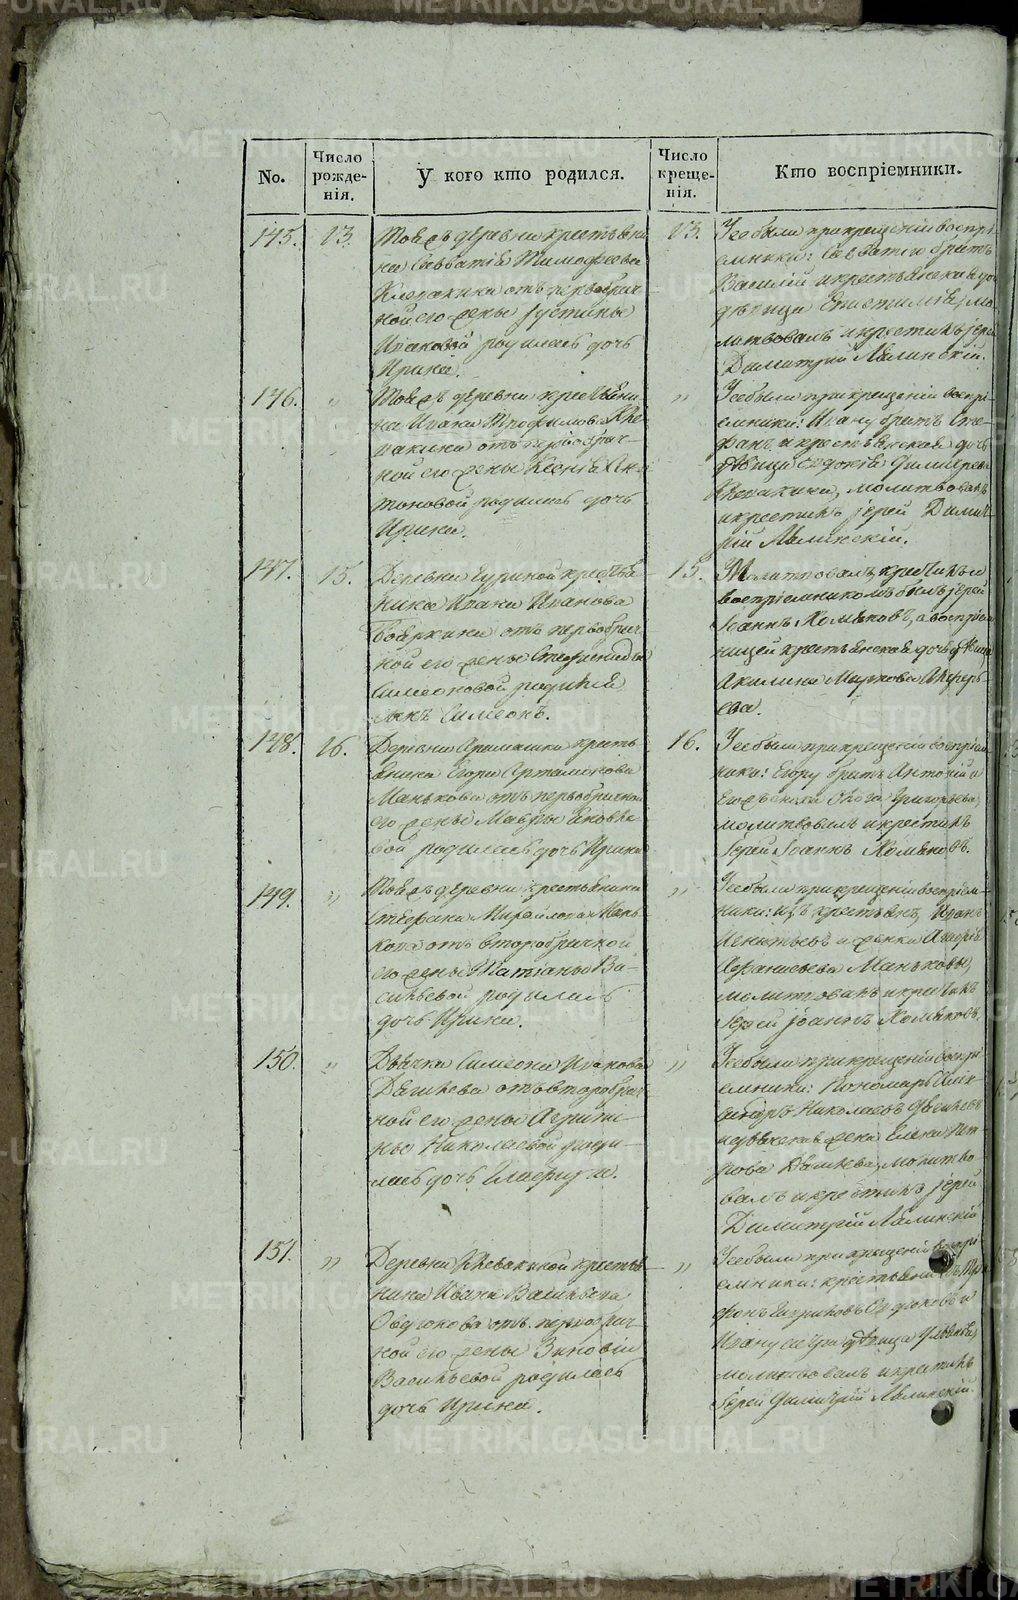 No.
Число рожде-нія.
У кого кто родился.
Число креще-нія.
Кто воспріемники.
145. 13.
Той же деревни крестьяни
на Савватія Тимофеева
Клевакина отъ первобрач-
ной его жены Іустины
Исаковой родилась дочь
Ирина.
13.
Усе были при крещеніи воспрі-
емники: Савватія братъ
Василій и крестьянская до
девица Епистимія, мо
литвовалъ и крестилъ іерей
Димитрій Лялинскій.
146. "
Той же деревни крестьяни
на Ивана Трофимова Кле
вакина отъ первобрач-
ной его жены Ксеніи
тоновой родилась дочь
Ирина.
"
Усе были при крещеніи воспрі-
емники: Ивану братъ Сте-
фанъ и крестьянская дочь
девица Евдокія
Клевакина, молитвовалъ
и крестилъ іерей Димит-
рій Лялинскій.
147. 15.
Деревни крестья
нина Ивана Иванова
отъ первобрач-
ной его жены Стефаниды
Симеоновой родился
сынъ Симеонъ.
15.
Молитвовалъ, крестилъ и
воспріемникомъ былъ іерей
Іоаннъ Хомяковъ, а воспріем
ницей крестьянская дочь девица
Акилина Маркова
ева.
148. 16.
Деревни Арамашки кресть
янина Егора Артамонова
Манькова отъ первобрачной
его жены Мавры
вой родилась дочь Ирина
16.
Усе были при крещеніи воспріем
ники: Егору братъ Антоній и
Григорьева,
молитвовалъ и крестилъ
Іерей Іоаннъ Хомяковъ.
149. "
Той же деревни крестьянина
Стефана Михайлова Мань-
кова отъ второбрачной
его жены Татіаны Ва-
сильевой родилась
дочь Ирина.
"
Усе были при крещеніи воспріем-
ники: изъ крестьянъ, Иванъ
и женка
Афанасьева Маньковы,
молитвовалъ и крестилъ
Іерей Іоаннъ Хомяковъ.
150. "
Дьячка Симеона Исакова
отъ второбрач
ной его жены Агрипи-
ны Николаевой роди-
лась дочь Гликерія.
"
Усе были при крещеніи воспрі
емники: Пономарь Алек
Николаевъ
жена Елена Пет
рова молитво
валъ и крестилъ іерей
Димитрій Лялинскій
151. "
Деревни Клевакиной крестья
нина Ивана Васильева
Овдюкова отъ первобрач-
ной его жены Зиновіи
Васильевой родилась
дочь Ирина.
"
Усе были при крещеніи воспрі
емники: крестьянинъ
Ивану сестра девица
молитвовалъ и крестилъ
Іерей Димитрій Лялинскій.
METRIKI.GASO-URAL.RU